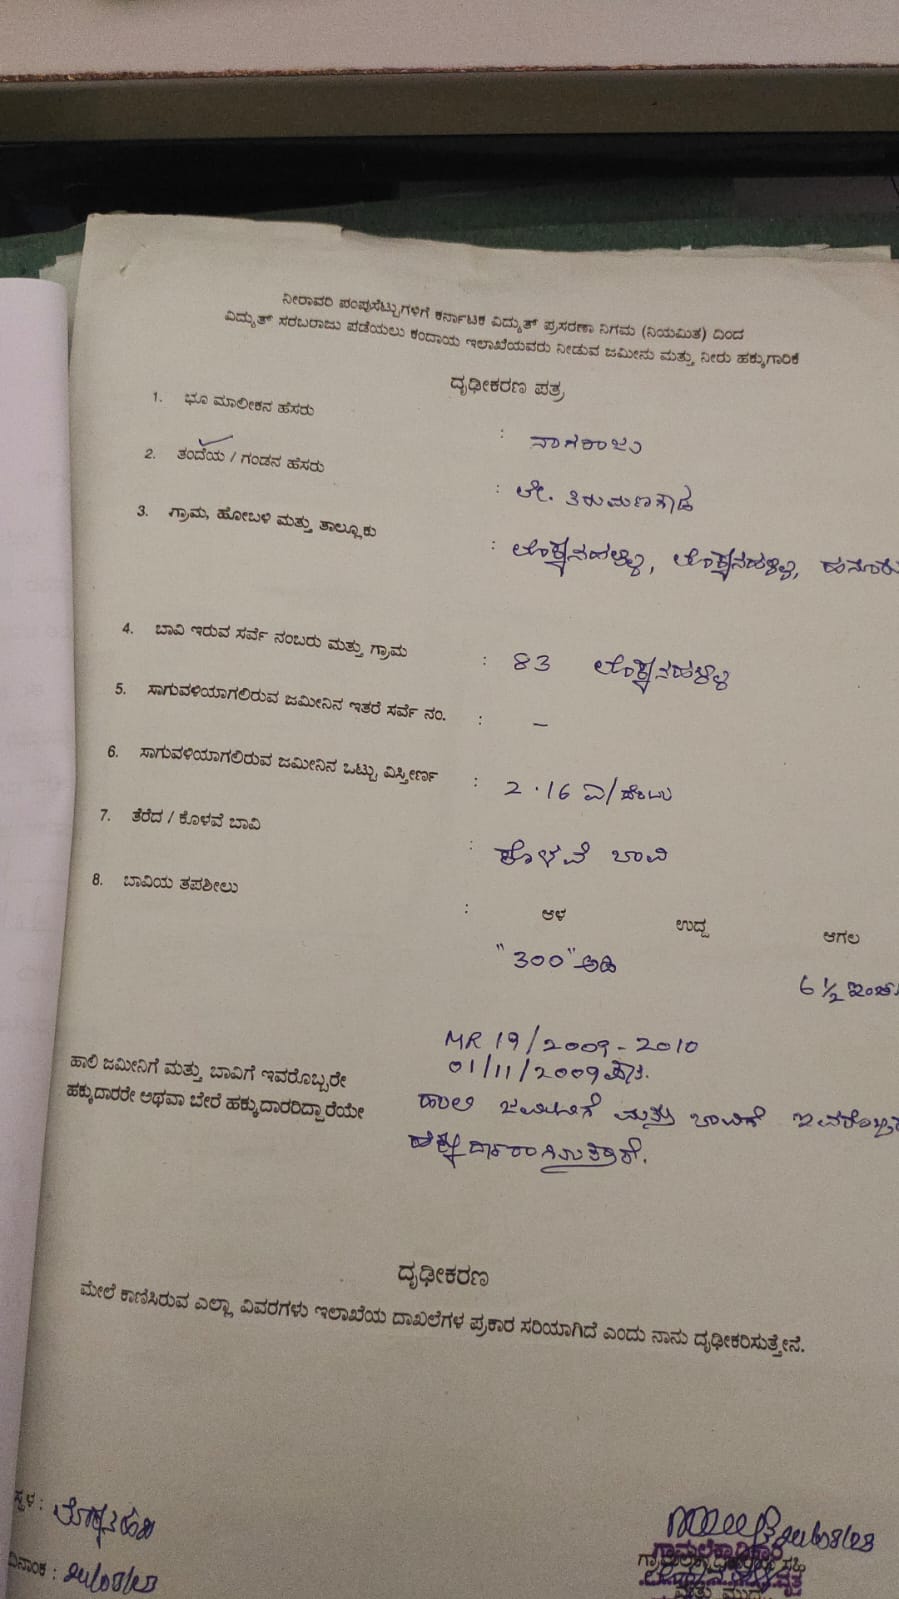 ನೀರಾವರಿ ಪಂಪುಸೆಟ್ಟುಗಳಿಗೆ ಕರ್ನಾಟಕ ವಿದ್ಯುತ್ ಪ್ರಸರಣಾ ನಿಗಮ (ನಿಯಮಿತ) ದಿಂದ
ವಿದ್ಯುತ್ ಸರಬರಾಜು ಪಡೆಯಲು ಕಂದಾಯ ಇಲಾಖೆಯವರು ನೀಡುವ ಜಮೀನು ಮತ್ತು ನೀರು ಹಕ್ಕುಗಾರಿಕೆ
ದೃಢೀಕರಣ ಪತ್ರ
1. ಭೂ ಮಾಲೀಕನ ಹೆಸರು : ನಾಗರಾಜು
2. ತಂದೆಯ / ಗಂಡನ ಹೆಸರು : ಲೇ. ತಿರುಮಣಗೌಡ
3. ಗ್ರಾಮ, ಹೋಬಳಿ ಮತ್ತು ತಾಲ್ಲೂಕು : ಲೊಕ್ಕನಹಳ್ಳಿ, ಲೊಕ್ಕನಹಳ್ಳಿ, ಹನೂರು
4. ಬಾವಿ ಇರುವ ಸರ್ವೆ ನಂಬರು ಮತ್ತು ಗ್ರಾಮ : 83 ಲೊಕ್ಕನಹಳ್ಳಿ
5. ಸಾಗುವಳಿಯಾಗಲಿರುವ ಜಮೀನಿನ ಇತರೆ ಸರ್ವೆ ನಂ. : –
6. ಸಾಗುವಳಿಯಾಗಲಿರುವ ಜಮೀನಿನ ಒಟ್ಟು ವಿಸ್ತೀರ್ಣ : 2.16 ಎ/ಸೆಂಟು
7. ತೆರೆದ / ಕೊಳವೆ ಬಾವಿ : ಕೊಳವೆ ಬಾವಿ
8. ಬಾವಿಯ ತಪಶೀಲು : ಆಳ ಉದ್ದ ಅಗಲ
"300" ಅಡಿ 6 ½ ಇಂಚು
MR 19/2009-2010
01/11/2009
ಹಾಲಿ ಜಮೀನಿಗೆ ಮತ್ತು ಬಾವಿಗೆ ಇವರೊಬ್ಬರೇ
ಹಕ್ಕುದಾರರೇ ಅಥವಾ ಬೇರೆ ಹಕ್ಕುದಾರರಿದ್ದಾರೆಯೇ
ಹಾಲಿ ಜಮೀನಿಗೆ ಮತ್ತು ಬಾವಿಗೆ ಇವರೊಬ್ಬರೇ
ಹಕ್ಕುದಾರರಾಗಿರುತ್ತಾರೆ.
ದೃಢೀಕರಣ
ಮೇಲೆ ಕಾಣಿಸಿರುವ ಎಲ್ಲಾ ವಿವರಗಳು ಇಲಾಖೆಯ ದಾಖಲೆಗಳ ಪ್ರಕಾರ ಸರಿಯಾಗಿದೆ ಎಂದು ನಾನು ದೃಢೀಕರಿಸುತ್ತೇನೆ.
ಸ್ಥಳ : ಲೊಕ್ಕನಹಳ್ಳಿ
ದಿನಾಂಕ : 21/08/23
21/08/23
ಗ್ರಾಮಲೆಕ್ಕಾಧಿಕಾರಿ